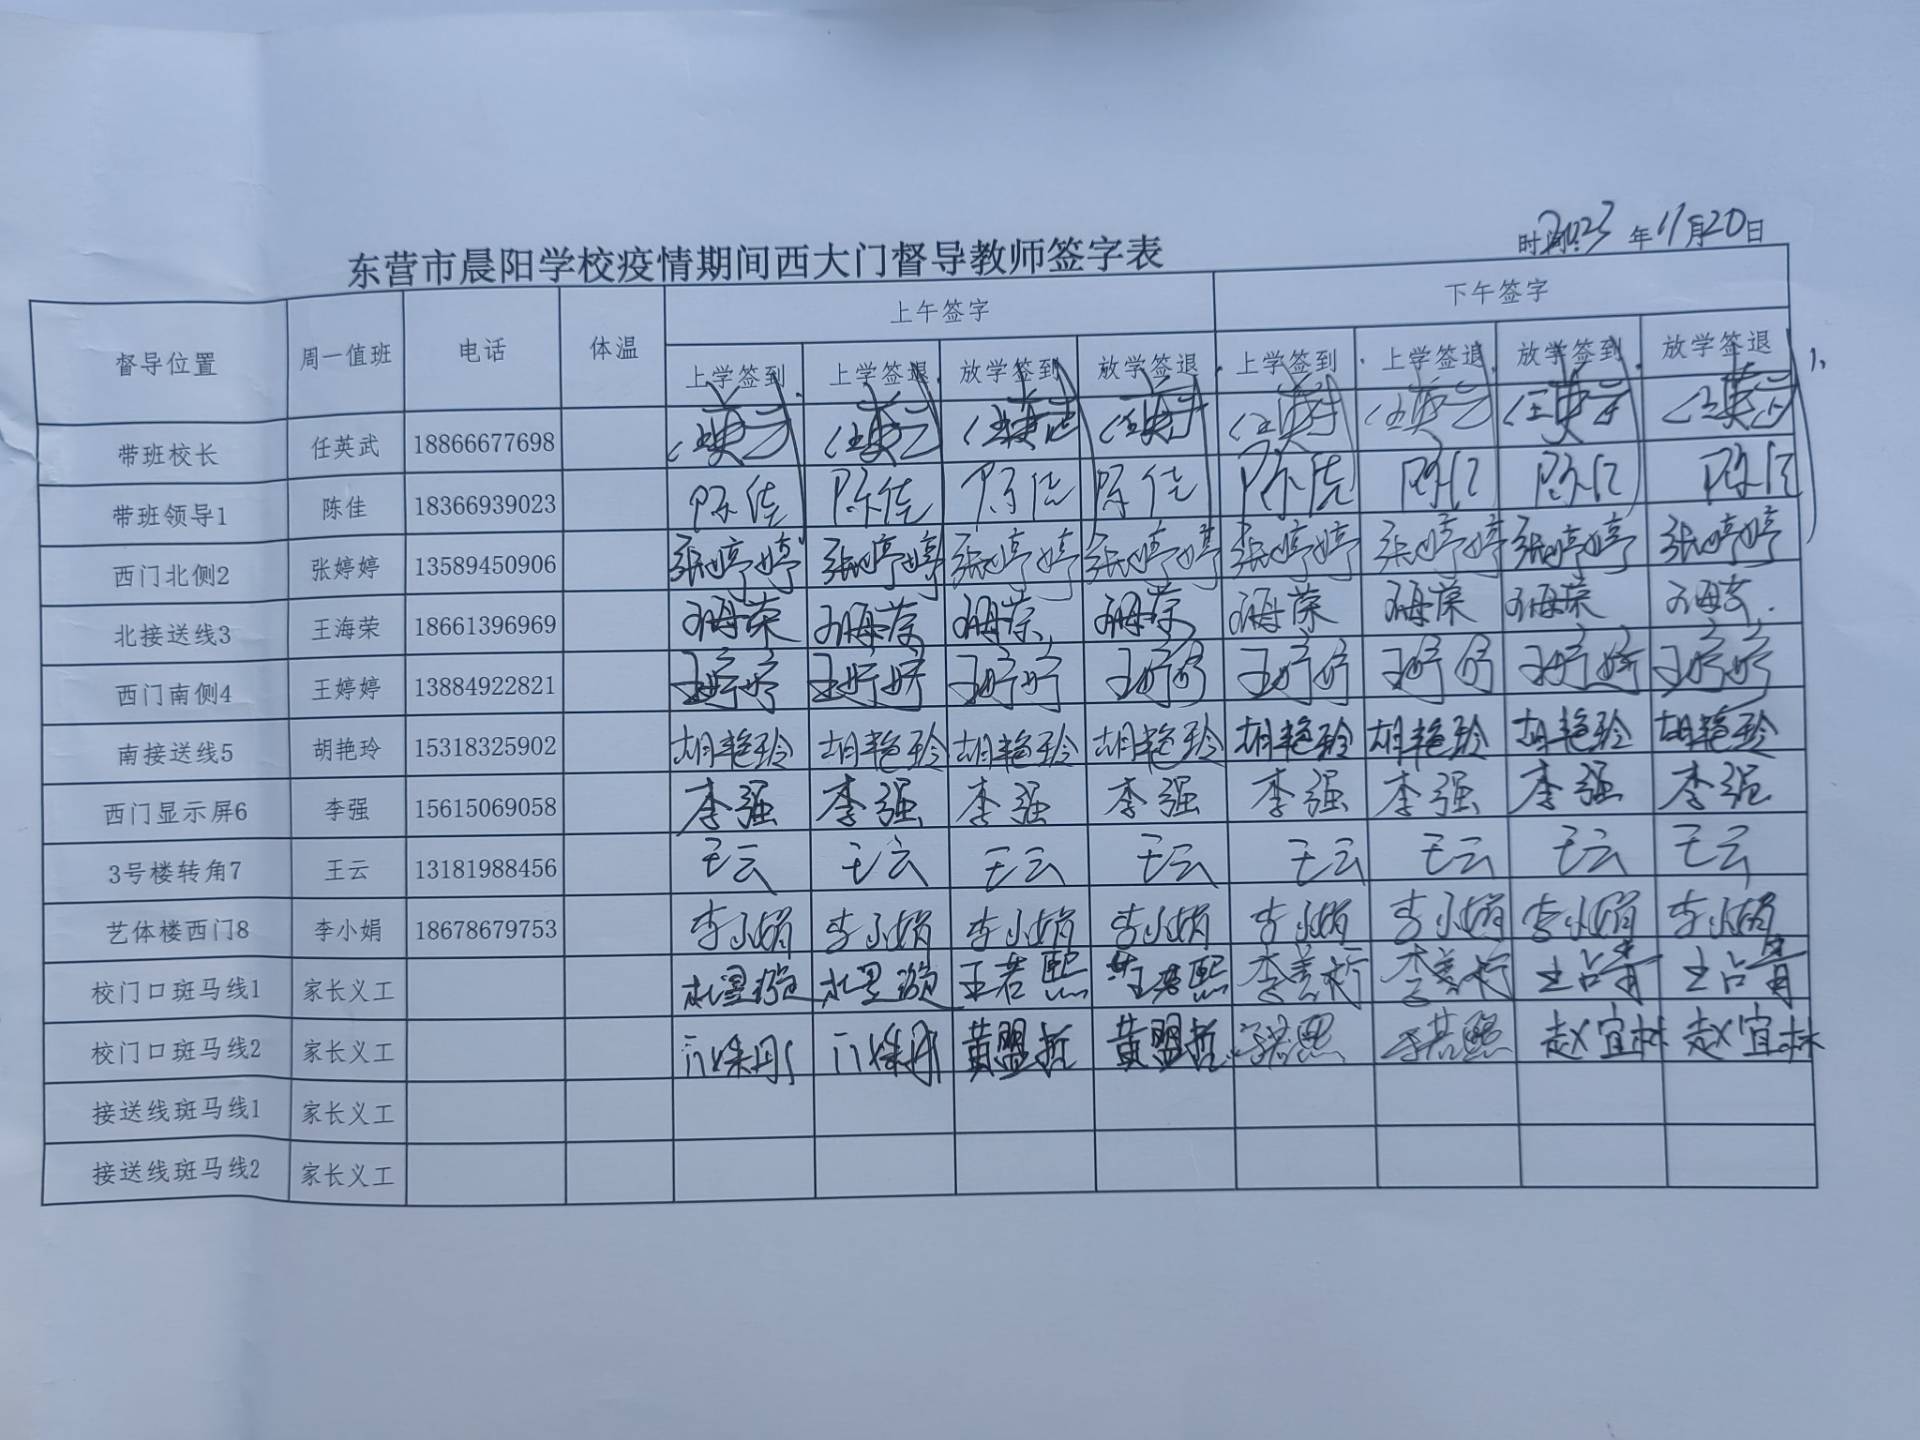 东营市晨阳学校疫情期间西大门督导教师签字表
时间:2023年11月20日
督导位置 周一值班 电话 体温 上午签字 下午签字
上学签到 上学签退 放学签到 放学签退 上学签到 上学签退 放学签到 放学签退
带班校长 任英武 18866677698 任英武 任英武 任英武 任英武 任英武 任英武 任英武 任英武
带班领导1 陈佳 18366939023 陈佳 陈佳 陈佳 陈佳 陈佳 陈佳 陈佳 陈佳
西门北侧2 张婷婷 13589450906 张婷婷 张婷婷 张婷婷 张婷婷 张婷婷 张婷婷 张婷婷 张婷婷
北接送线3 王海荣 18661396969 王海荣 王海荣 王海荣 王海荣 王海荣 王海荣 王海荣 王海荣
西门南侧4 王婷婷 13884922821 王婷婷 王婷婷 王婷婷 王婷婷 王婷婷 王婷婷 王婷婷 王婷婷
南接送线5 胡艳玲 15318325902 胡艳玲 胡艳玲 胡艳玲 胡艳玲 胡艳玲 胡艳玲 胡艳玲 胡艳玲
西门显示屏6 李强 15615069058 李强 李强 李强 李强 李强 李强 李强 李强
3号楼转角7 王云 13181988456 王云 王云 王云 王云 王云 王云 王云 王云
艺体楼西门8 李小娟 18678679753 李小娟 李小娟 李小娟 李小娟 李小娟 李小娟 李小娟 李小娟
校门口斑马线1 家长义工 王若熙 王若熙
校门口斑马线2 家长义工 黄盟哲 黄盟哲 赵宜林 赵宜林
接送线斑马线1 家长义工
接送线斑马线2 家长义工